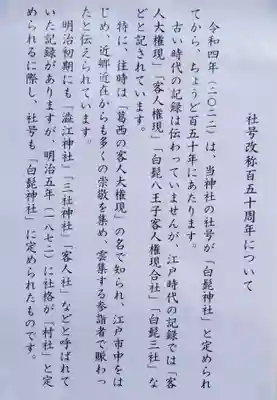 社号改称百五十周年について
令和四年(二〇二二)は、当神社の社号が「白髭神社」と定められ
てから、ちょうど百五十年にあたります。
古い時代の記録は伝わっていませんが、江戸時代の記録では「客
人大権現」「客人権現」「白髭八王子客人権現合社」「白髭三社」な
どと記されています。
特に、往時は「葛西の客人大権現」の名で知られ、江戸市中をは
じめ、近郷近在からも多くの崇敬を集め、雲集する参詣者で賑わっ
たと伝えられています。
明治初期にも「澁江神社」「三社神社」「客人社」などと呼ばれて
いた記録がありますが、明治五年(一八七二)に社格が「村社」と定
められるに際し、社号も「白髭神社」に定められたものです。